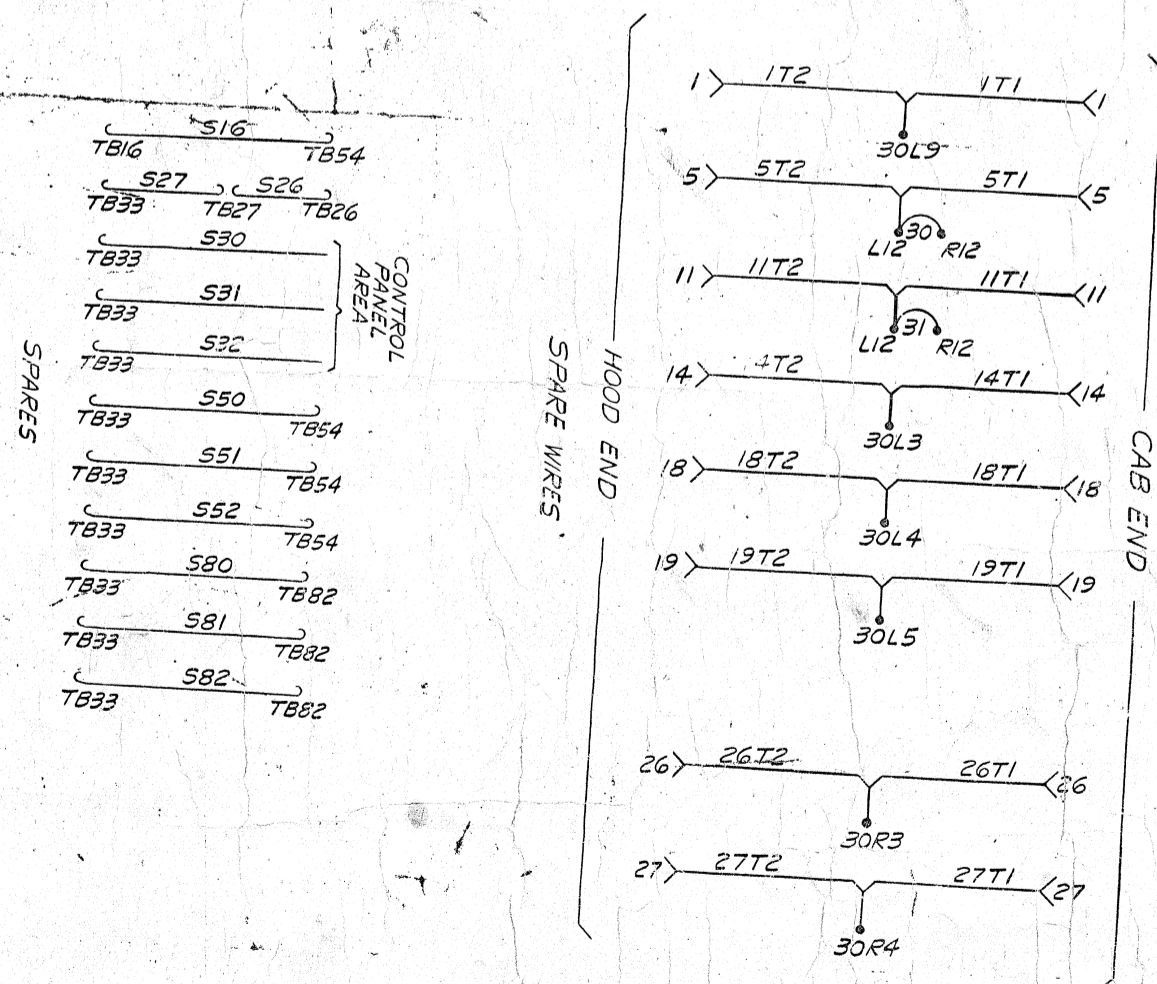 S16
TB16 TB54
S27 S26
TB33 TB27 TB26
S30
TB33
S31
TB33
S32
TB33
CONTROL
PANEL
AREA
S50
TB33 TB54
S51
TB33 TB54
S52
TB33 TB54
S80
TB33 TB82
S81
TB33 TB82
S82
TB33 TB82
SPARES
HOOD END
SPARE WIRES
1 1T2 1T1 1
30L9
5 5T2 5T1 5
L12 30 R12
11 11T2 11T1 11
L12 31 R12
14 4T2 14T1 14
30L3
18 18T2 18T1 18
30L4
19 19T2 19T1 19
30L5
26 26T2 26T1 26
30R3
27 27T2 27T1 27
30R4
CAB END